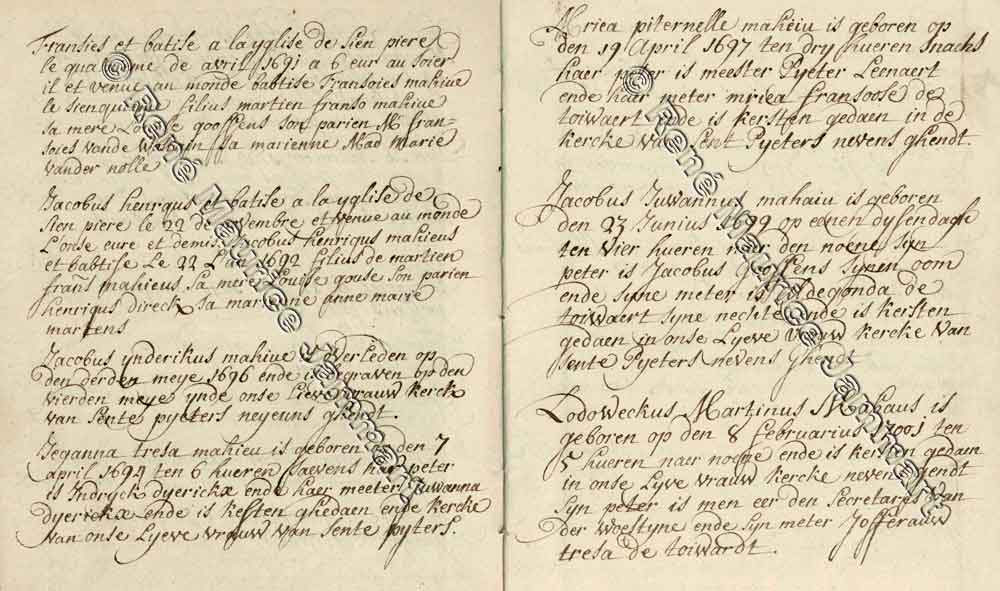 Fransies et batise a la yglise de sien piere
le de avril 1691 a 6 eur au soier
il et venue au monde babtise Fransoies mahieue
le filius martien franso mahieue
sa mere goossens son parien Mr fran-
soies vande sa marienne Mad Marie
vander nolle
Jacobus henrqus et batise a la yglise de
sien piere le 22 de et venue au monde
L'onse eure et demis Jacobus henriqus mahieus
et babtise Le 22 1692 filius de martien
frans mahieus sa mere Louise gouse son parien
henriqus direckx sa anne marie
martens
Jacobus ynderikus mahiue is overleden op
den derden meye 1696 ende is begraven op den
vierden meye ynde onse Lieve vrauw kerck
van sente pyeters neyeuns ghendt.
Jeganna tresa mahieu is geboren den 7
april 1694 ten 6 hueren saevens haer peter
is Indryck dyerickx ende haer meeter Juwanna
dyerickx ende is kesten ghedaen ende kercke
van onse Lyeve vrouw van sente pyters.
Mriea piternelle mahieiu is geboren op
den 19 April 1697 ten dry hueren snachs
haer peter is meester Pyeter Leenaert
ende haer meter mriea fransoose de
toiwaert ende is kersten gedaen in de
kercke van sent Pyeters nevens ghendt.
Jacobus Juwannus mahaiu is geboren
den 23 Junius 1699 op eenen dysendagh
ten vier hueren naer den noene syn
peter is Jacobus Goossens synen oom
ende syne meter is de
toiwaert syne nechte ende is kersten
gedaen in onse Lyeve vrauw kercke van
sente Pyeters nevens Ghendt
Lodoweckus Martinus Mahaus is
geboren op den 8 februarius 1700 ten
5 hueren naer nogne ende is kersten gedaen
in onse Lyve vrauw kercke nevens ghendt
syn peter is men eer den secretares van
der woestyne ende syn meter Jofferauw
tresa de toiwardt.
© René Maurice Mahieu
© René Maurice